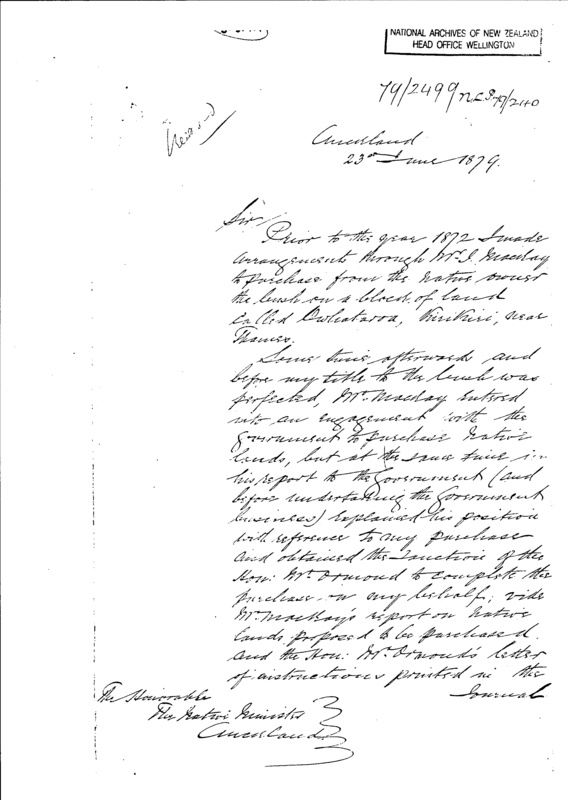 NATIONAL ARCHIVES OF NEW ZEALAND
HEAD OFFICE WELLINGTON
79/2499 N.L.P. 79/240
Auckland
23rd June 1879.
Sir
Prior to the year 1872 I made
arrangements through Mr. J. Mackay
to purchase from the Native owner
the bush on a block of land
called Owhataroa, KiriKiri, near
Thames.
Some time afterwards and
before my title to the bush was
perfected, Mr. Mackay entered
into an engagement with the
Government to purchase Native
lands, but at the same time in
his report to the Government (and
before undertaking the Government
business) explained his position
with reference to my purchase
and obtained the sanction of the
Hon: Mr. Ormond to complete the
purchase on my behalf; vide
Mr. Mackay's report on Native
lands proposed to be purchased
and the Hon: Mr. Ormond's letter
of instructions printed in the
Journal
The Honorable
The Native Minister
Auckland